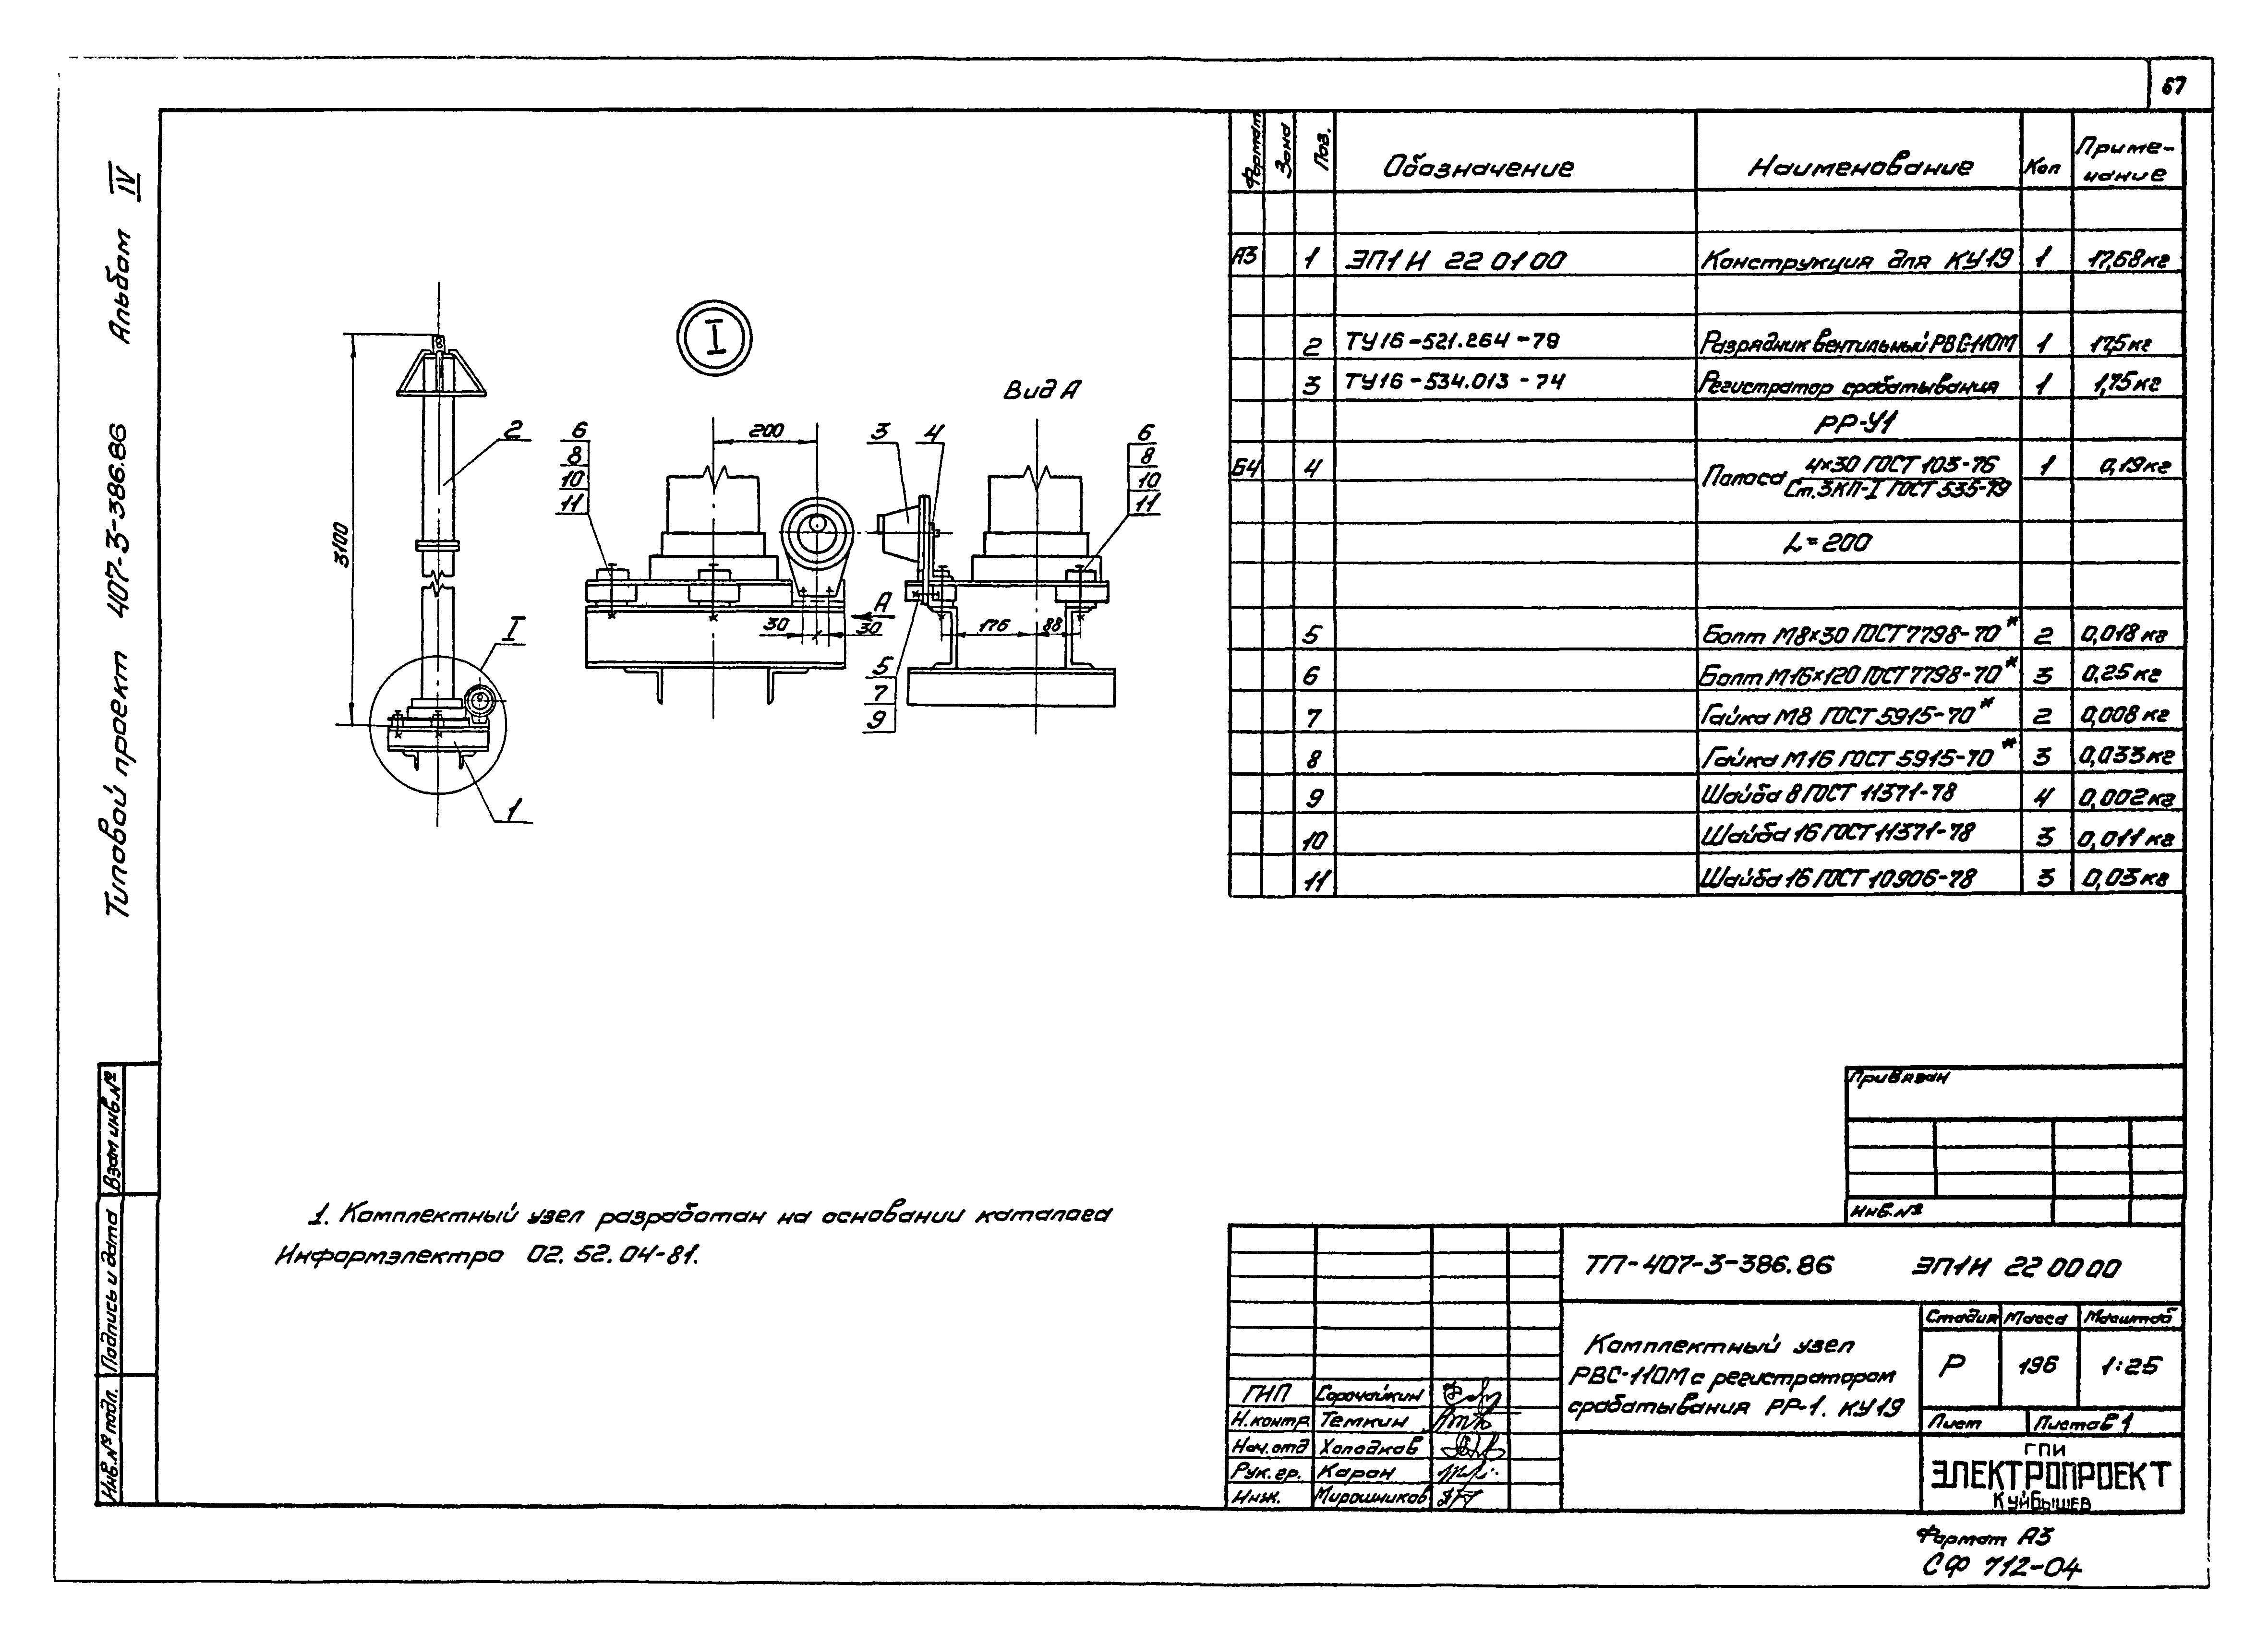 67
Типовой проект 407-3-386.86 Альбом IV
Формат Зона Поз. Обозначение Наименование Кол Приме-
чание
А3 1 ЭП1И 22 01 00 Конструкция для КУ19 1 17,68кг
2 ТУ16-521.264-79 Разрядник вентильный РВС-110М 1 175кг
3 ТУ16-534.013-74 Регистратор срабатывания 1 1,75кг
РР-У1
Б4 4 Полоса 4×30 ГОСТ 103-76 1 0,19кг
Ст.3КП-I ГОСТ 535-79
L=200
5 Болт М8×30 ГОСТ 7798-70* 2 0,018кг
6 Болт М16×120 ГОСТ 7798-70* 3 0,25кг
7 Гайка М8 ГОСТ 5915-70* 2 0,008кг
8 Гайка М16 ГОСТ 5915-70* 3 0,033кг
9 Шайба 8 ГОСТ 11371-78 4 0,002кг
10 Шайба 16 ГОСТ 11371-78 3 0,011кг
11 Шайба 16 ГОСТ 10906-78 3 0,03кг
3100
2
I
1
I
200
6
8
10
11
А
30 30
Вид А
3 4
6
8
10
11
176 88
5
7
9
1. Комплектный узел разработан на основании каталога
Информэлектро 02.52.04-81.
Взам инв.№
Подпись и дата
Инв.№ подл.
Привязан
Инв.№
ТП-407-3-386.86 ЭП1И 22 00 00
Комплектный узел
РВС-110М с регистратором
срабатывания РР-1. КУ19
Стадия Масса Масштаб
Р 196 1:25
Лист Листов 1
ГИП Сорочайкин
Н.контр. Темкин
Нач.отд Холодков
Рук.гр. Каран
Инж. Мирошников
ГПИ
ЭЛЕКТРОПРОЕКТ
Куйбышев
Формат А3
СФ 712-04